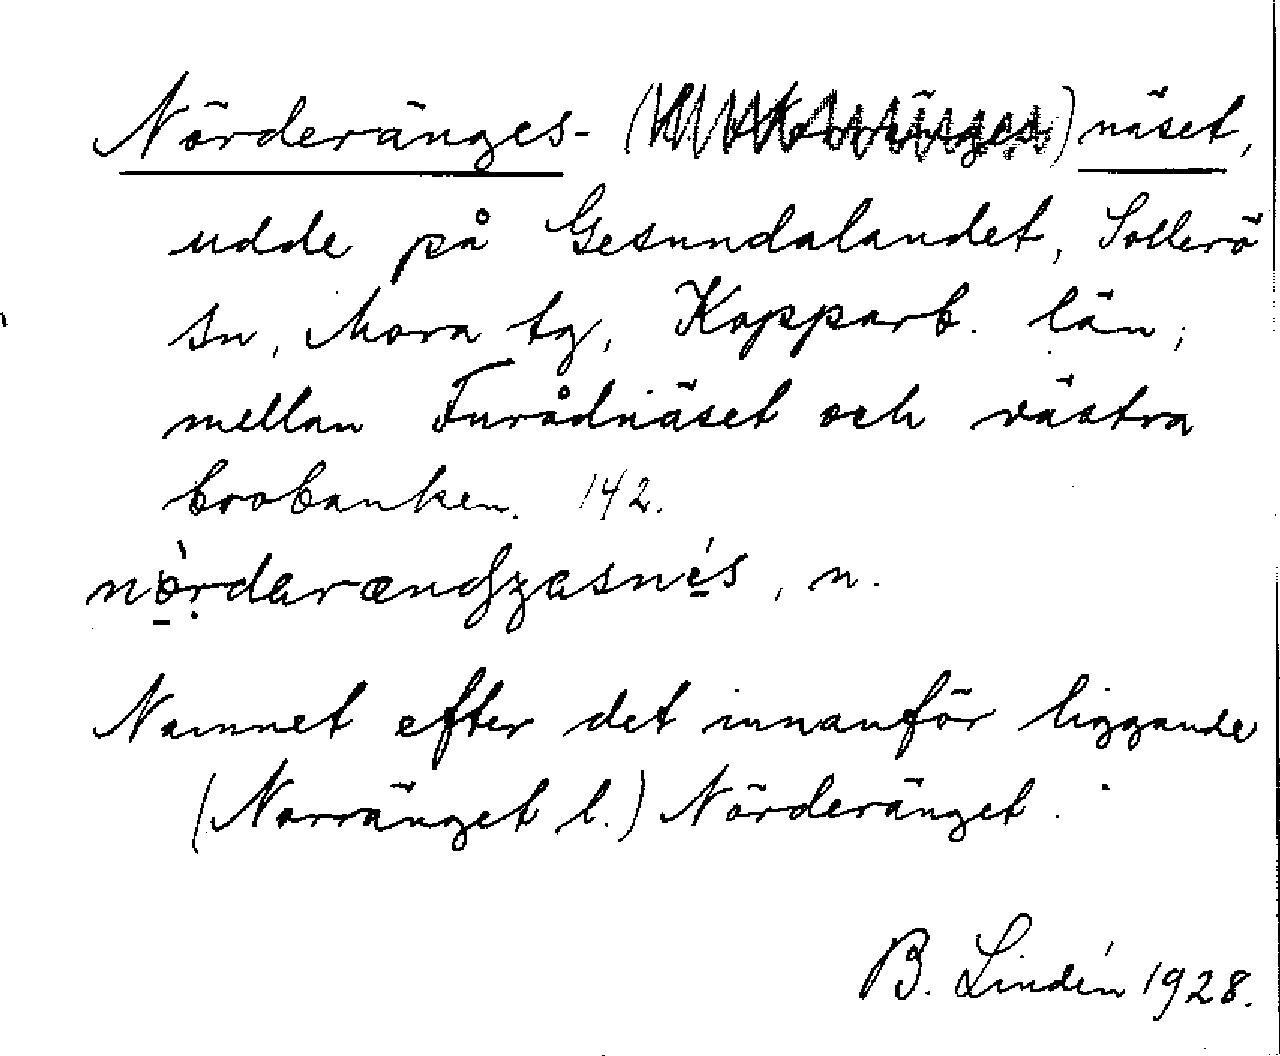 Nörderänges- () näset,
udde på Gesundalandet, Sollerö
sn, Mora tg, Kopparb. län;
mellan Furådnäset och västra
brobanken. 142.
, n.
Namnet efter det innanför liggande
(Norränget l.) Nörderänget.
B. Lindén 1928.